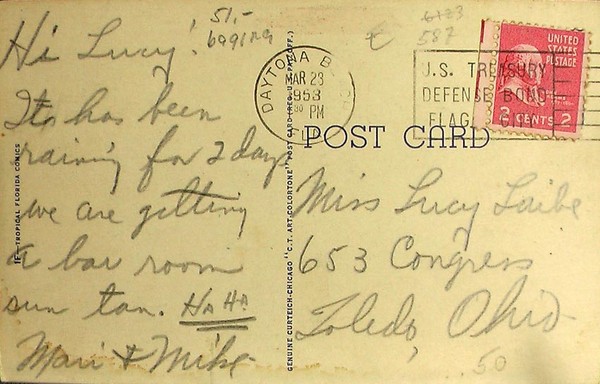 51.-
6991RG
6123
587
UNITED
STATES
POSTAGE
2 CENTS 2
DAYTONA B
MAR 23
1953
30 PM
U.S. TREASURY
DEFENSE BOND
FLAG
POST CARD
Hi Lucy!
Its has been
raining for 2 days
we are getting
a bar room
sun tan. HA HA
Mari & Mike
Miss Lucy Laibe
653 Congress
Toledo, Ohio
.50
TROPICAL FLORIDA COMICS
GENUINE CURTEICH-CHICAGO "C.T. ART-COLORTONE" POST CARD (REG. U.S. PAT. OFF.)